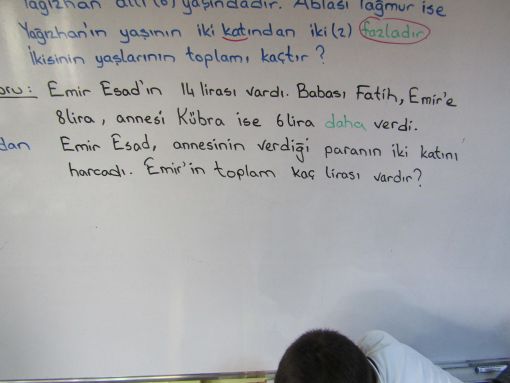 Yağızhan altı (6) yaşındadır. Ablası Yağmur ise
Yağızhan'ın yaşının iki katından iki (2) fazladır.
İkisinin yaşlarının toplamı kaçtır?
oru: Emir Esad'ın 14 lirası vardı. Babası Fatih, Emir'e
8lira, annesi Kübra ise 6lira daha verdi.
dan Emir Esad, annesinin verdiği paranın iki katını
harcadı. Emir'in toplam kaç lirası vardır?